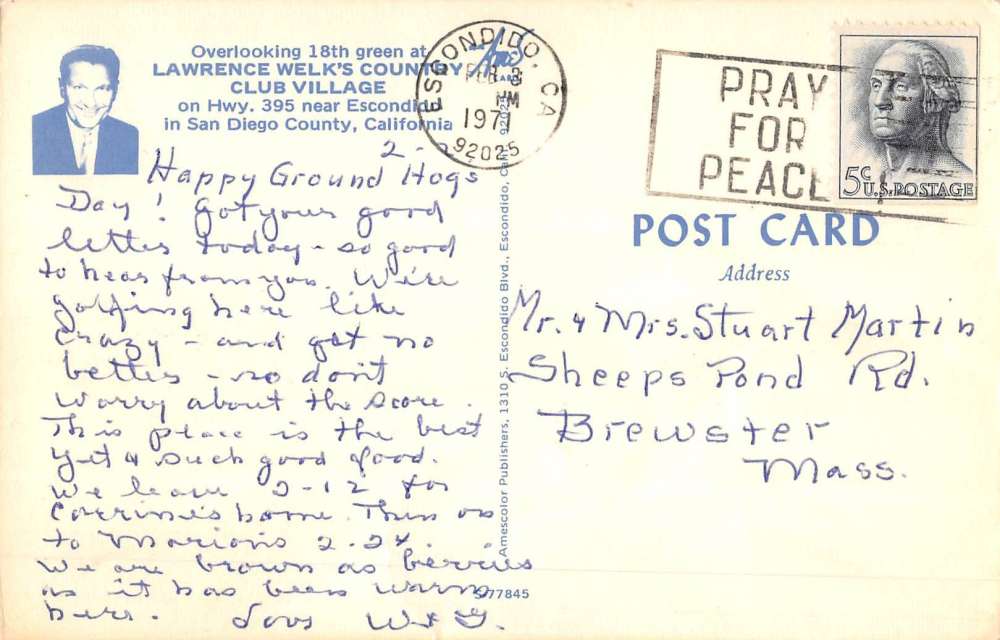 Overlooking 18th green at
LAWRENCE WELK'S COUNTRY
CLUB VILLAGE
on Hwy. 395 near Escondido
in San Diego County, California
2-
Happy Ground Hogs
Day! Got your good
letter today - so good
to hear from you. We're
golfing here like
crazy - and get no
better - so don't
worry about the score.
This place is the best
yet & such good food.
We leave 2-12 for
Corrine's home. Then on
to Marion's 2-24.
We are brown as berries
as it has been warm
here. Love W & G.
Amescolor Publishers, 1310 S. Escondido Blvd., Escondido, Calif. 92025
S77845
ESCONDIDO, CA
FEB 3
PM
197
92025
PRAY
FOR
PEACE
5c
U.S. POSTAGE
POST CARD
Address
Mr. & Mrs. Stuart Martin
Sheeps Pond Rd.
Brewster
Mass.